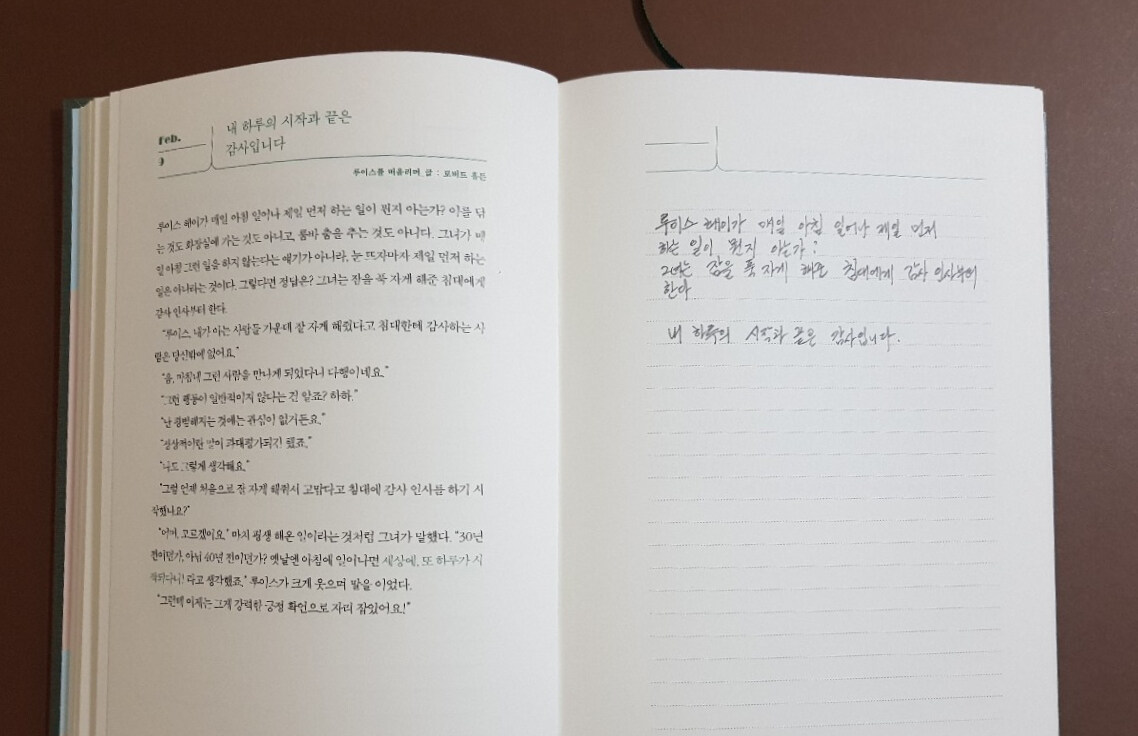 feb.
9
내 하루의 시작과 끝은
감사입니다
루이스를 떠올리며, 글 : 로버트 홀든
루이스 헤이가 매일 아침 일어나 제일 먼저 하는 일이 뭔지 아는가? 이를 닦
는 것도 화장실에 가는 것도 아니고, 룸바 춤을 추는 것도 아니다. 그녀가 매
일 아침 그런 일을 하지 않는다는 얘기가 아니라, 눈 뜨자마자 제일 먼저 하는
일은 아니라는 것이다. 그렇다면 정답은? 그녀는 잠을 푹 자게 해준 침대에게
감사 인사부터 한다.
“루이스, 내가 아는 사람들 가운데 잘 자게 해줬다고 침대한테 감사하는 사
람은 당신밖에 없어요.”
“음, 마침내 그런 사람을 만나게 되었다니 다행이네요.”
“그런 행동이 일반적이지 않다는 건 알죠? 하하.”
“난 평범해지는 것에는 관심이 없거든요.”
“정상적이란 말이 과대평가되긴 했죠.”
“나도 그렇게 생각해요.”
“그럼 언제 처음으로 잘 자게 해줘서 고맙다고 침대에 감사 인사를 하기 시
작했나요?”
“어머, 모르겠어요.” 마치 평생 해온 일이라는 것처럼 그녀가 말했다. “30년
전이던가, 아님 40년 전이던가? 옛날엔 아침에 일어나면 세상에, 또 하루가 시
작되다니! 라고 생각했죠.” 루이스가 크게 웃으며 말을 이었다.
“그런데 이제는 그게 강력한 긍정 확언으로 자리 잡았어요!”
루이스 헤이가 매일 아침 일어나 제일 먼저
하는 일이 뭔지 아는가?
그녀는 잠을 푹 자게 해준 침대에게 감사 인사부터
한다.
내 하루의 시작과 끝은 감사입니다.